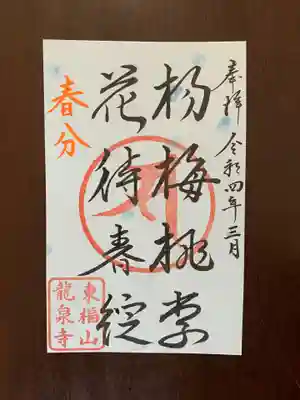 奉拝 令和四年三月
楊梅桃李
花待春綻
春分
東福山
龍泉寺